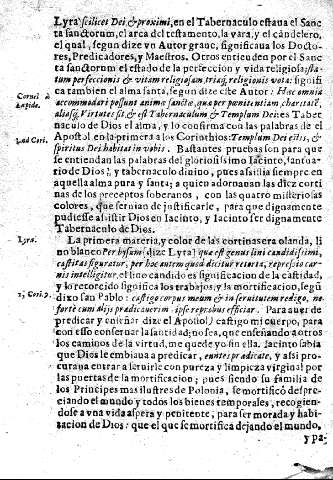 Lyra scilicet Dei & proximi, en el Tabernaculo estaua el Sanc
ta sanctorum, el arca del testamento, la vara, y el candelero,
el qual, segun dize vn Autor graue, significaua los Docto-
res, Predicadores, y Maestros. Otros entienden por el Sanc
ta sanctorum el estado de la perfeccion y vida religiosa; sta-
tum perfectionis & vitam religiosam, triaq; religionis vota: signifi
Cornel. à
Lapide.
ca tambien el alma santa, segun dize este Autor: Hæc omnia
accommodari possunt animæ sanctæ, quæ per pænitentiam, charitatē,
aliasq; Virtutes sit, & est Tabernaculum & Templum Dei: es Taber
naculo de Dios el alma, y lo confirma con las palabras de el
1. ad Cori.
Apostol en la primera à los Corinthios: Templum Dei estis, &
spiritus Dei habitat in vobis. Bastantes prueuas son para que
se entiendan las palabras del gloriosissimo Iacinto, santua-
rio de Dios, y tabernaculo diuino, pues assistia siempre en
aquella alma pura y santa; a quien adornauan las diez corti
nas de los preceptos soberanos, con las quatro misteriosas
colores, que seruian de justificarle, para que dignamente
pudiesse assistir Dios en Iacinto, y Iacinto ser dignamente
Tabernaculo de Dios.
Lyra.
La primera materia, y color de las cortinas era olanda, li
no blanco Per byssum [dize Lyra] quæ est genus lini candidissimi,
castitas figuratur, per hoc autem quod dicitur retorta, repressio car-
nis intelligitur, el lino candido es significacion de la castidad,
y lo retorcido significa los trabajos, y la mortificacion, segū
1. Cori. 9.
dixo san Pablo: castigo corpus meum & in seruitutem redigo, ne
forte cum alijs prædicauerim ipse reprobus efficiar. Para auer de
predicar y enseñar dize el Apostol) castigo mi cuerpo, para
con esso conseruar la santidad; no sea, que enseñando à otros
los caminos de la virtud, me quede yo sin ella. Iacinto sabia
que Dios le embiaua a predicar, euntes prædicate, y assi pro-
curaua entrar a seruirle con pureza y limpieza virginal por
las puertas de la mortificacion; pues siendo su familia de
los Principes mas ilustres de Polonia, se mortificò despre-
ciando el mundo y todos los bienes temporales, recogien-
dose a vna vida aspera y penitente, para ser morada y habi-
tacion de Dios: que el que se mortifica dejando el mundo,
y pa-